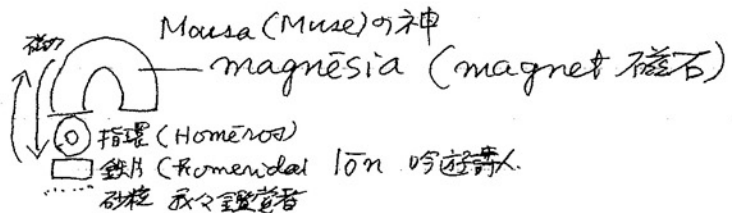 Mousa (Muse)の神
磁力
magnēsia (magnet 磁石)
指環 (Homēros)
鉄片 (Homeridai Iōn 吟遊詩人
砂粒 我々鑑賞者